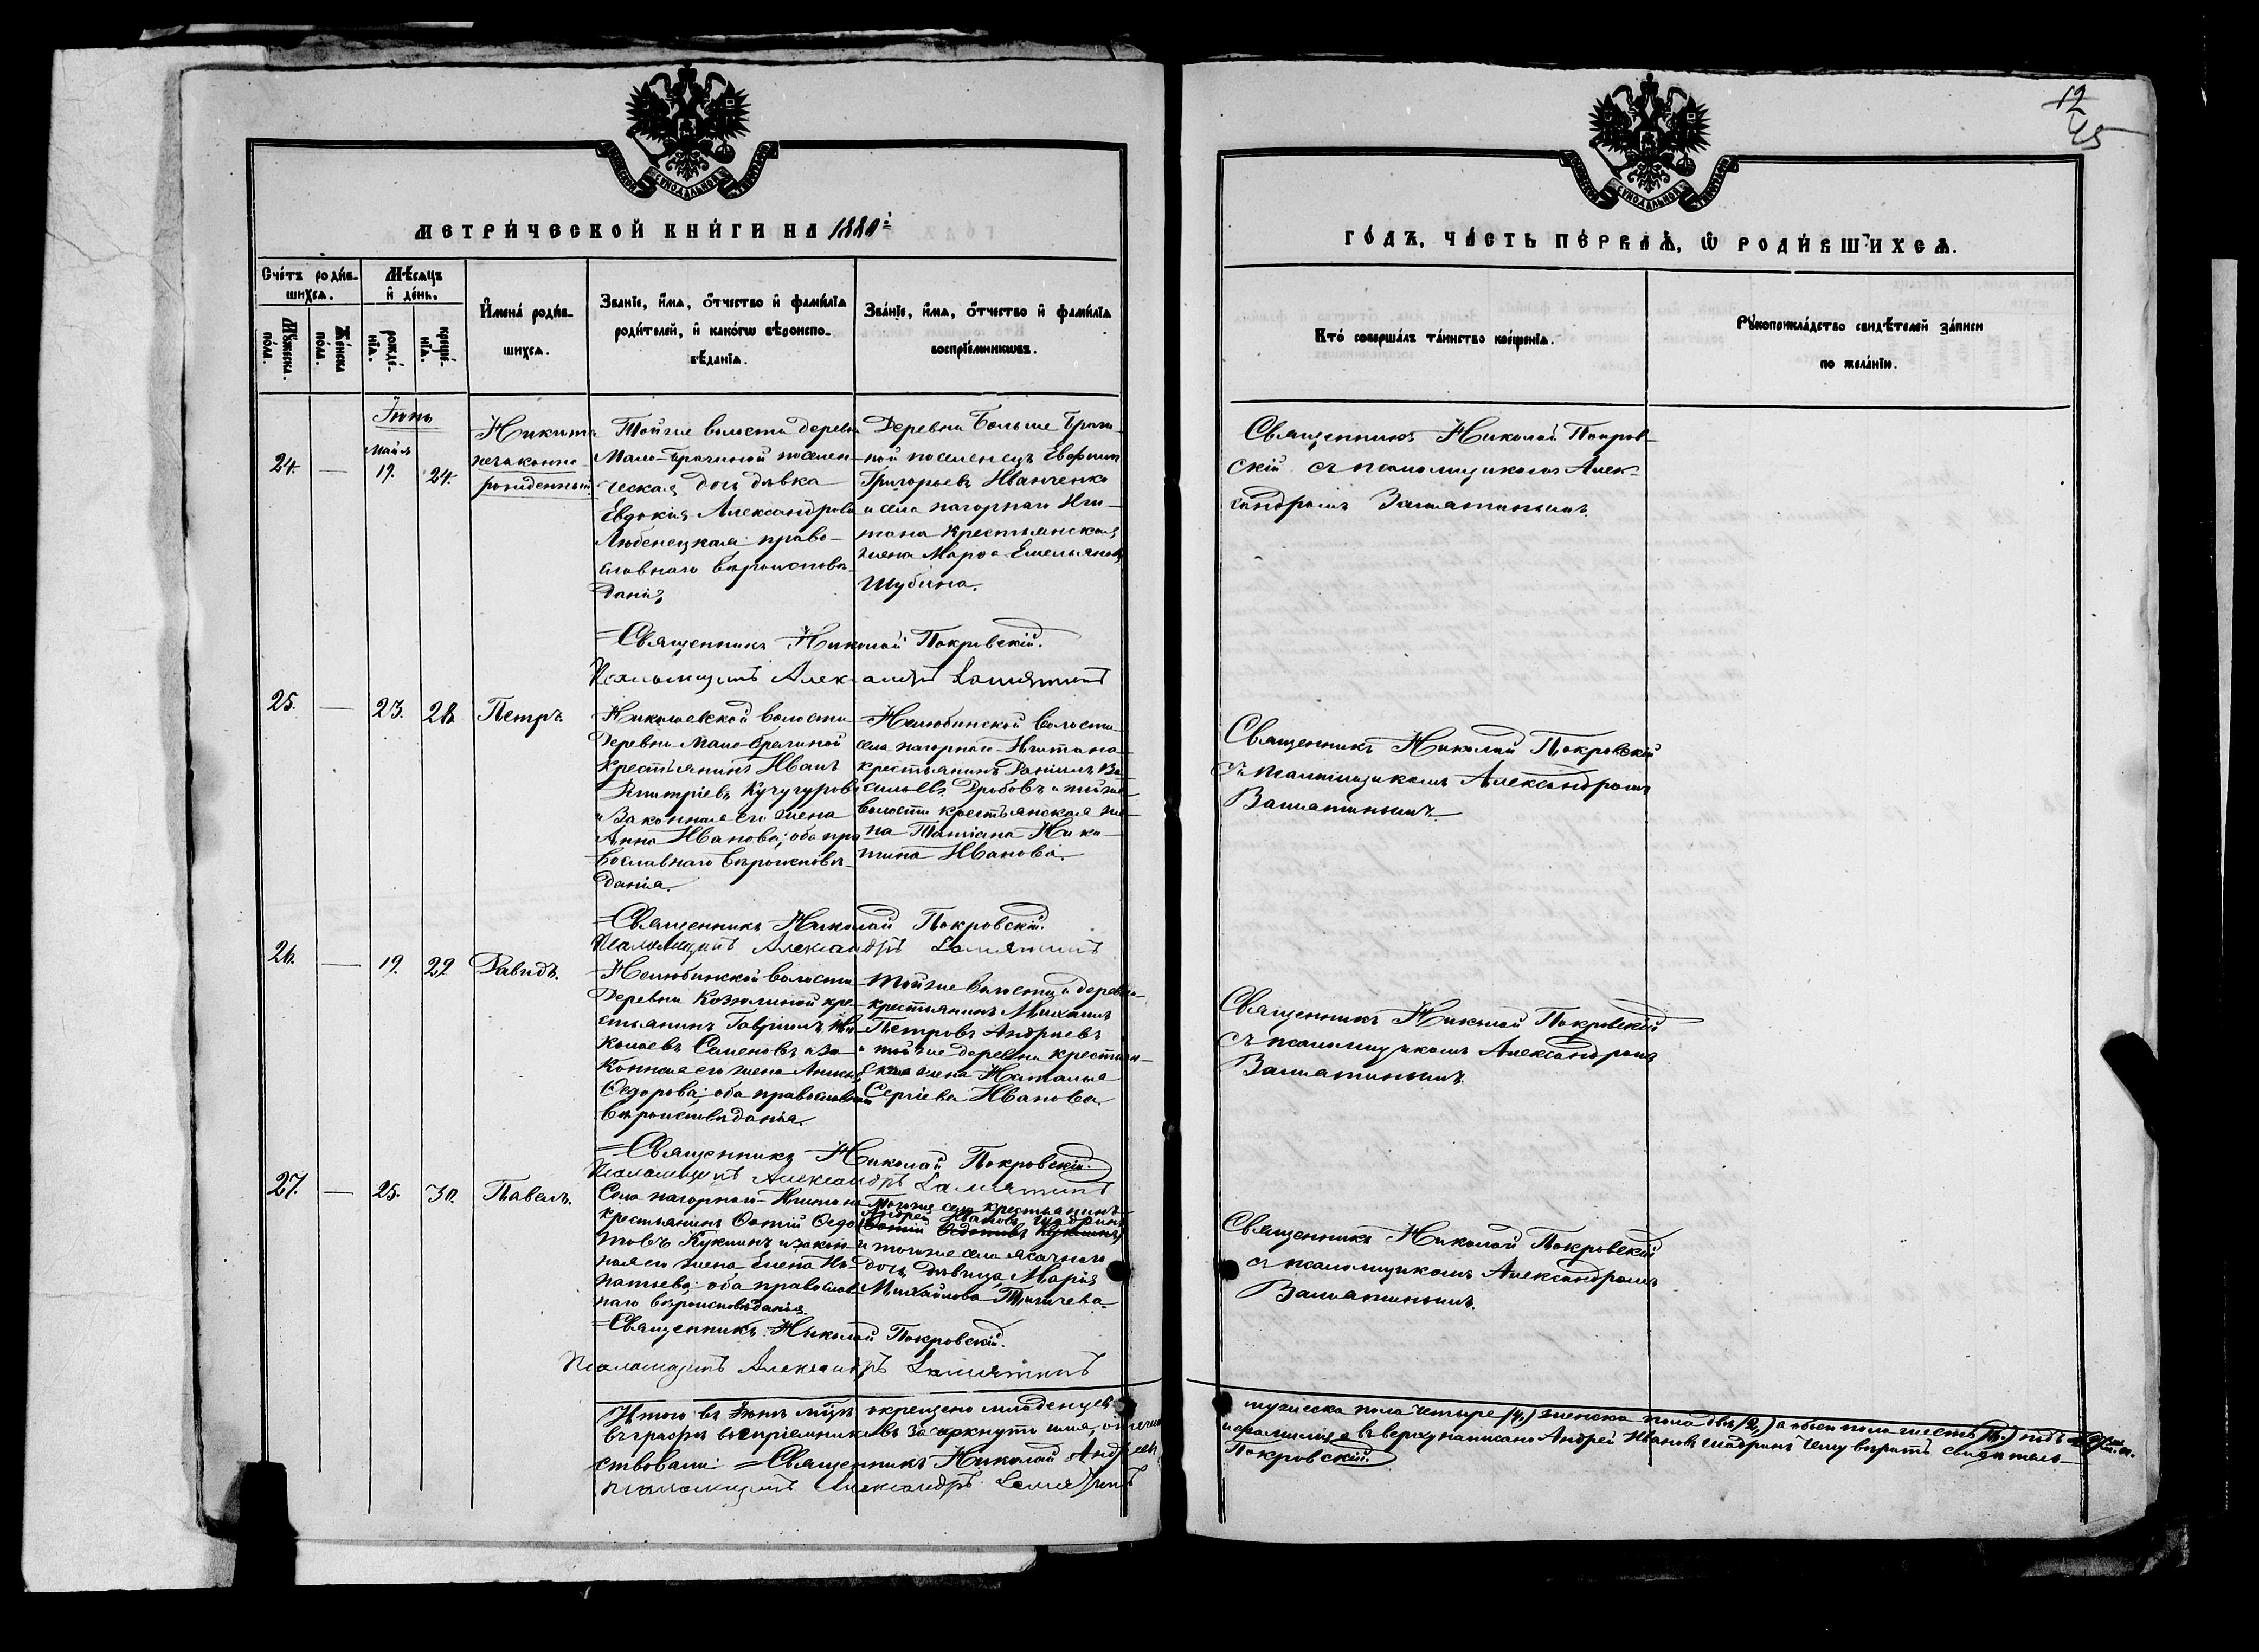 12
45
МЕТРИ́ЧЕСКОЙ КНИ́ГИ НА 1880й
ГО́ДЪ, ЧА́СТЬ ПЕ́РВАѦ, Ѡ РОДИ́ВШИХСѦ.
Сче́тъ роди́в-
шихсѧ.
Мѣ́сѧцъ
и҆ де́нь.
Мꙋ́жеска по́ла.
Же́нска по́ла.
рожде́-
нїѧ.
креще́-
нїѧ.
И҆мена̀ роди́в-
шихсѧ.
Зва́нїе, и҆́мѧ, ѻ҆́тчество и҆ фами́лїѧ
роди́телей, и҆ како́гѡ вѣроиспо-
вѣ́данїѧ.
Зва́нїе, и҆́мѧ, ѻ҆́тчество и҆ фами́лїѧ
воспрїе́мникѡвъ.
Кто̀ соверша́лъ та́инство креще́нїѧ.
Рꙋкоприкла́дство свидѣ́телей за́писи
по жела́нїю.
Іюнь
Мая
24. — 19. 24.
Никита
незаконно-
рожденный
Тойже волости деревни
Мало-Брагиной поселен-
ческая дочь дѣвка
Евдокія Александрова
Любенецкая право-
славнаго вѣроисповѣ-
данія
Деревни Больше Браги-
ной поселенецъ Евфимъ
Григорьевъ Иванченко
и села нагорнаго Иш-
тана крестьянская
жена Марѳа Емельянова
Шубина.
Священникъ Николай Покров-
скій съ псаломщикомъ Алек-
сандромъ Замятинымъ.
=Священникъ Николай Покровскій.
Псаломщикъ Александръ Замятинъ
25. — 23. 28. Петръ.
Николаевской волости
Деревни Мало-Брагиной
крестьянинъ Иванъ
Дмитріевъ Кучугуровъ
и законная его жена
Анна Иванова; оба пра-
вославнаго вѣроисповѣ-
данія.
Нелюбинской волости
села нагорнаго-Иштана
крестьянинъ Даніилъ Ва-
сильевъ Дробовъ и тойже
волости крестьянская же-
на Татіана Ники-
тина Иванова.
Священникъ Николай Покровскій
съ псаломщикомъ Александромъ
Замятинымъ.
=Священникъ Николай Покровскій.
Псаломщикъ Александръ Замятинъ
26. — 19. 29 Давидъ.
Нелюбинской волости
Деревни Козюлиной кре-
стьянинъ Гавріилъ Ни-
колаевъ Семеновъ и за-
конная его жена
Ѳедорова; оба православнаго
вѣроисповѣданія.
Тойже волости и деревни
крестьянинъ Михаилъ
Петровъ Андреевъ
и тойже деревни крестьян-
ская жена Наталья
Сергіева Иванова.
Священникъ Николай Покровскій
съ псаломщикомъ Александромъ
Замятинымъ.
=Священникъ Николай Покровскій.
Псаломщикъ Александръ Замятинъ
27. — 25. 30. Павелъ.
Села нагорнаго-Иштана
крестьянинъ Фотій Ѳедо-
товъ Кукшинъ и закон-
ная его жена Елена Иг-
натьева; оба православ-
наго вѣроисповѣданія.
Тогоже села крестьянинъ
Андрей Ивановъ Шадринъ
Фотій Ѳедотовъ Кукшинъ
и тогоже села ясачнаго
дочь дѣвица Марія
Михайлова Тигичева.
Священникъ Николай Покровскій
съ псаломщикомъ Александромъ
Замятинымъ.
=Священникъ Николай Покровскій.
Псаломщикъ Александръ Замятинъ
Итого въ Іюнѣ мцѣ окрещено младенцевъ
мужеска пола четыре (4,) женска пола двѣ (2,) а обоего пола шесть (6.)
въ графѣ воспріемниковъ зачеркнуто имя, отчество
и фамилія а вверху написано Андрей Ивановъ Шадринъ чему вѣрить свидѣтель-
ствовали: =Священникъ Николай Андреевъ
Покровскій
псаломщикъ Александръ Замятинъ